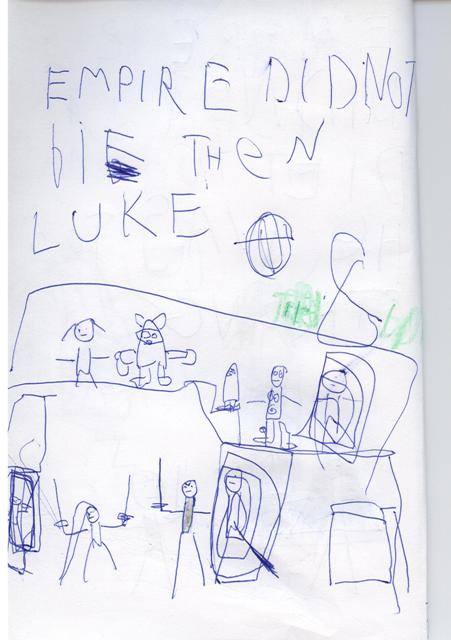 EMPIRE DIDNOT
biE THeN
LUKE